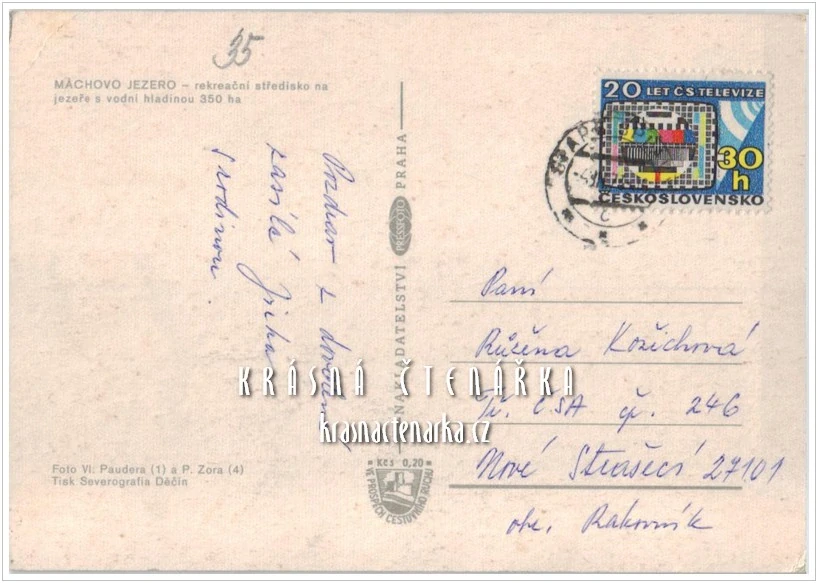 35
MÁCHOVO JEZERO – rekreační středisko na
jezeře s vodní hladinou 350 ha
Pozdrav z dovolené
zasílá Jirka
s rodinou.
NAKLADATELSTVÍ PRESSFOTO PRAHA
20 LET ČS TELEVIZE
30
h
ČESKOSLOVENSKO
Paní
Růžena Kožíchová
Tř. ČSA čp. 246
Nové Strašecí 27101
okr. Rakovník
KRÁSNÁ ČTENÁŘKA
krasnactenarka.cz
Foto Vl. Paudera (1) a P. Zora (4)
Tisk Severografia Děčín
Kčs 0,20
VE PROSPĚCH CESTOVNÍHO RUCHU